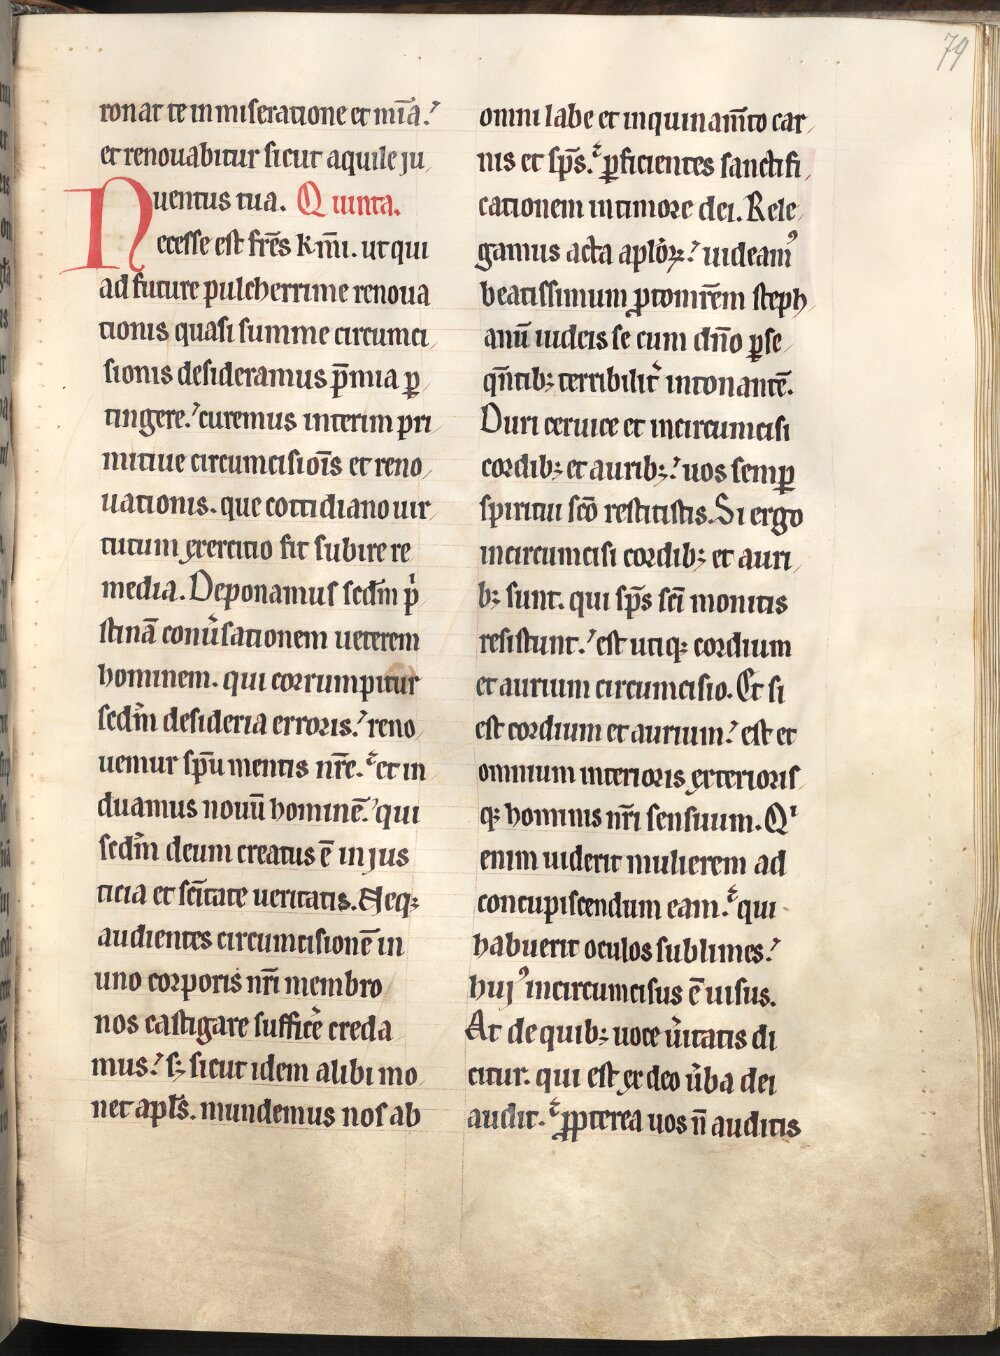 79
ronat te in miseratione et mīa.
et renouabitur sicut aquile ju
uentus tua. Quinta.
Necesse est frēs k̄mi. ut qui
ad future pulcherrime renoua
tionis quasi summe circumci
sionis desideramus p̄mia ꝑ
tingere. curemus interim pri
mitiue circumcisioīs et reno
uationis. que cottidiano uir
tutum exercitio fit subire re
media. Deponamus sedm̄ pͥ
stinā conu̓sationem ueterem
hominem. qui corrumpitur
sedm̄ desideria erroris. reno
uemur spū mentis nr̄e. et in
duamus nouū hominē. qui
sedm̄ deum creatus ē in jus
ticia et scītate ueritatis. Neq;
audientes circumcisionē in
uno corporis nr̄i membro
nos castigare sufficē creda
mus. s; sicut idem alibi mo
net apl̄s. mundemus nos ab
omni labe et inquinam̄to car
nis et sp̄s. ꝑficientes sanctifi
cationem in timore dei. Rele
gamus acta aplōꝝ. uideamꝰ
beatissimum ꝓtomr̄em steph
anū iudeis se cum dn̄o ꝑse
qn̄tib; terribilit̓ intonantē.
Duri ceruice et incircumcisi
cordib; et aurib;. uos semꝑ
spiritui scō restitistis. Si ergo
incircumcisi cordib; et auri
b; sunt. qui sp̄s sc̄i monitis
resistunt. est utiq; cordium
et aurium circumcisio. Et si
est cordium et aurium. est et
omnium interioris exterioris
q; hominis nr̄i sensuum. Qͥ
enim uiderit mulierem ad
concupiscendum eam. qui
habuerit oculos sublimes.
hujꝰ incircumcisus ē uisus.
At de quib; uoce u̓itatis di
citur. qui est ex deo u̓ba dei
audit. ꝓpterea uos n̄ auditis